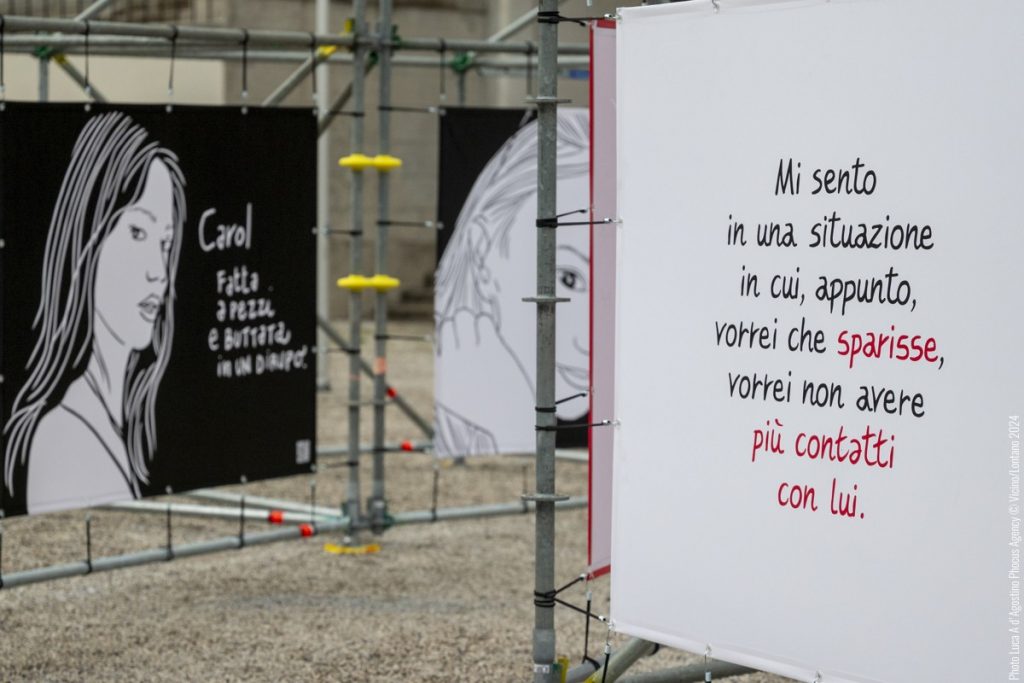 Carol
Fatta
a pezzi
e Buttata
in un dirupo.
Mi sento
in una situazione
in cui, appunto,
vorrei che sparisse,
vorrei non avere
più contatti
con lui.
Photo Luca A d'Agostino Phocus Agency © Vicino/Lontano 2024